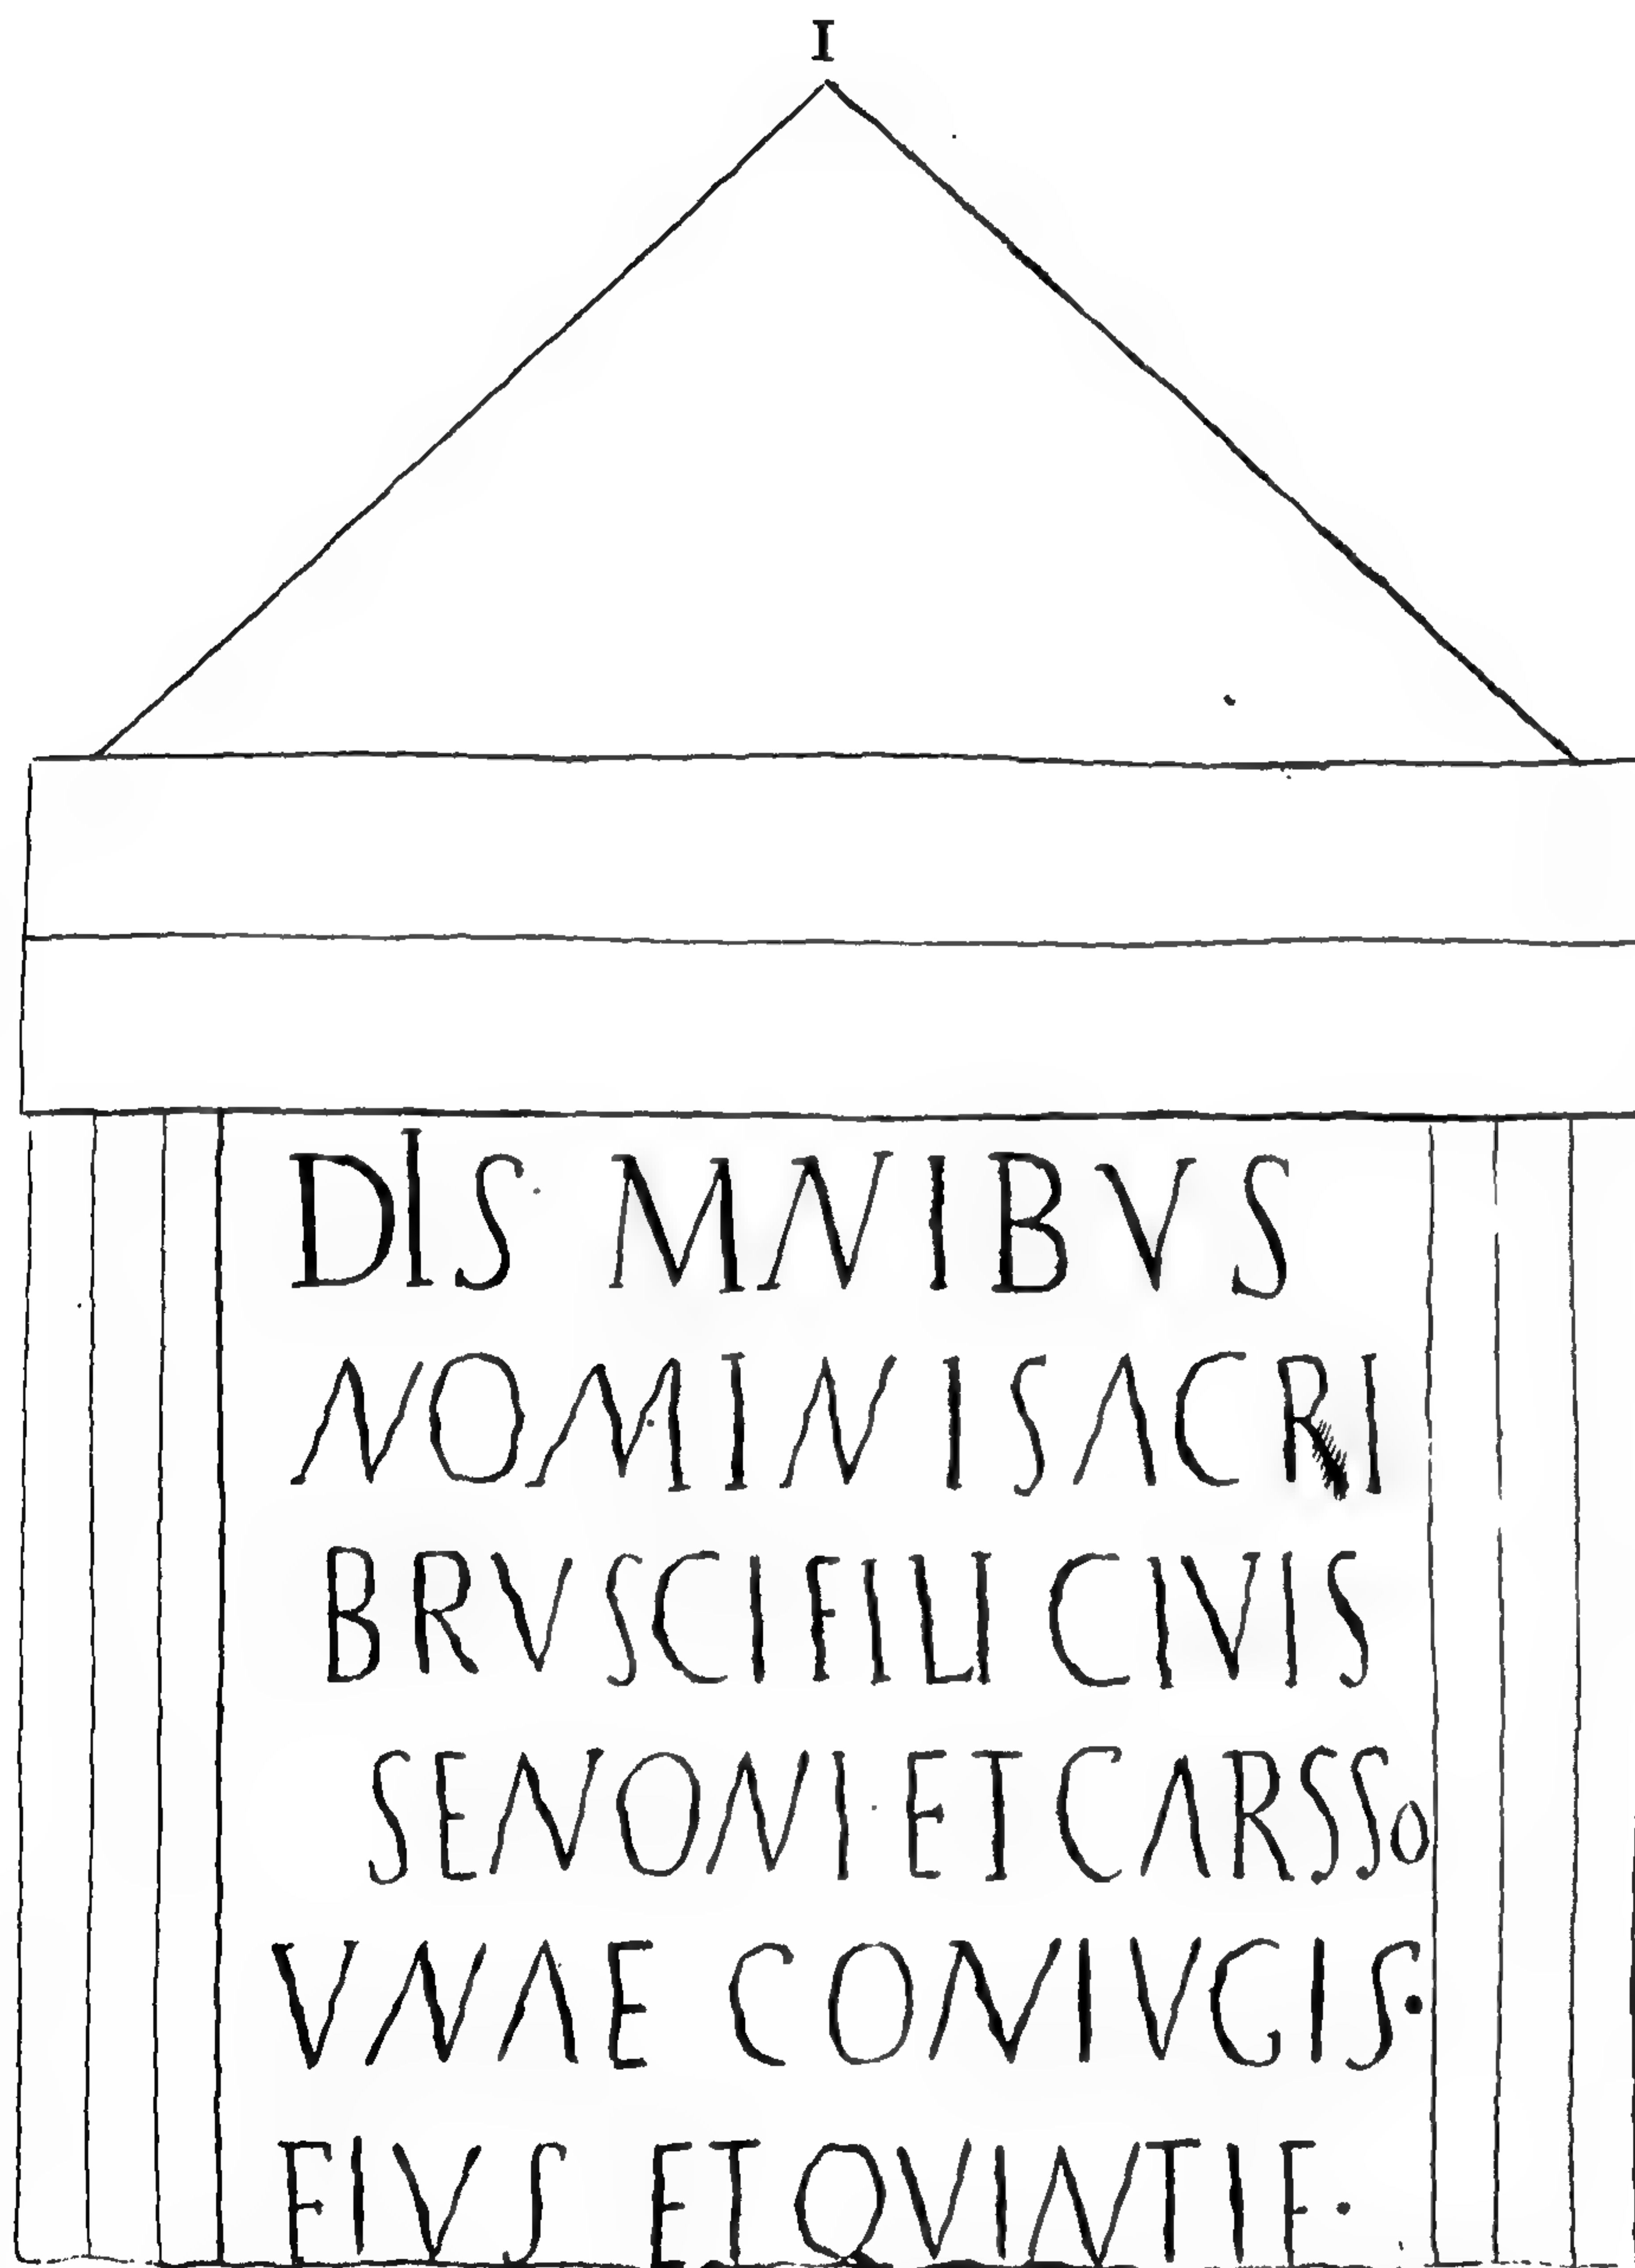 I
DIS MNIBVS
NOMINI SACRI
BRVSCI FILI CIVIS
SENONI ET CARSSO
VNAE CONIVGIS·
EIVS ET QVINTI F·